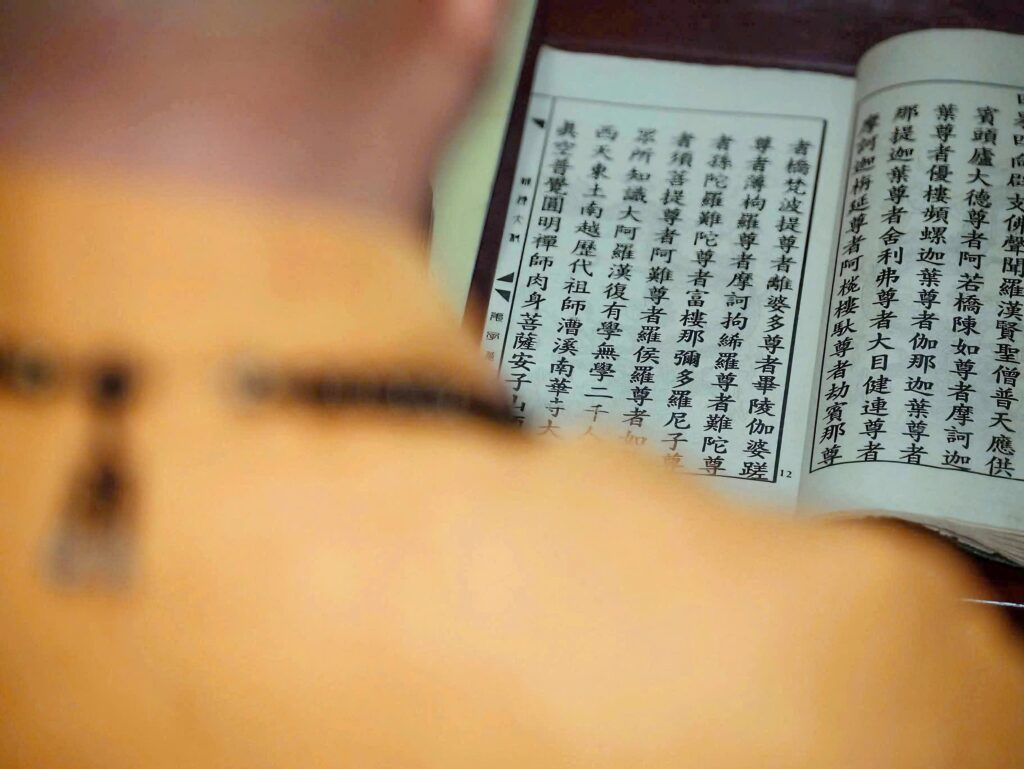 四果四向辟支佛聲聞羅漢賢聖僧普天應供
賓頭盧大德尊者阿若橋陳如尊者摩訶迦
葉尊者優樓頻螺迦葉尊者伽那迦葉尊者
那提迦葉尊者舍利弗尊者大目健連尊者
摩訶迦旃延尊者阿樓馱尊者劫賓那尊
者橋梵波提尊者離婆多尊者畢陵伽婆蹉
尊者薄拘羅尊者摩訶拘絺羅尊者難陀尊
者孫陀羅難陀尊者富樓那彌多羅尼子尊
者須菩提尊者阿難尊者羅侯羅尊者如
眾所知識大阿羅漢復有學無學二千人
西天東土南越歷代祖師漕溪南華寺大
眞空普覺圓明禪師肉身菩薩安子山
12